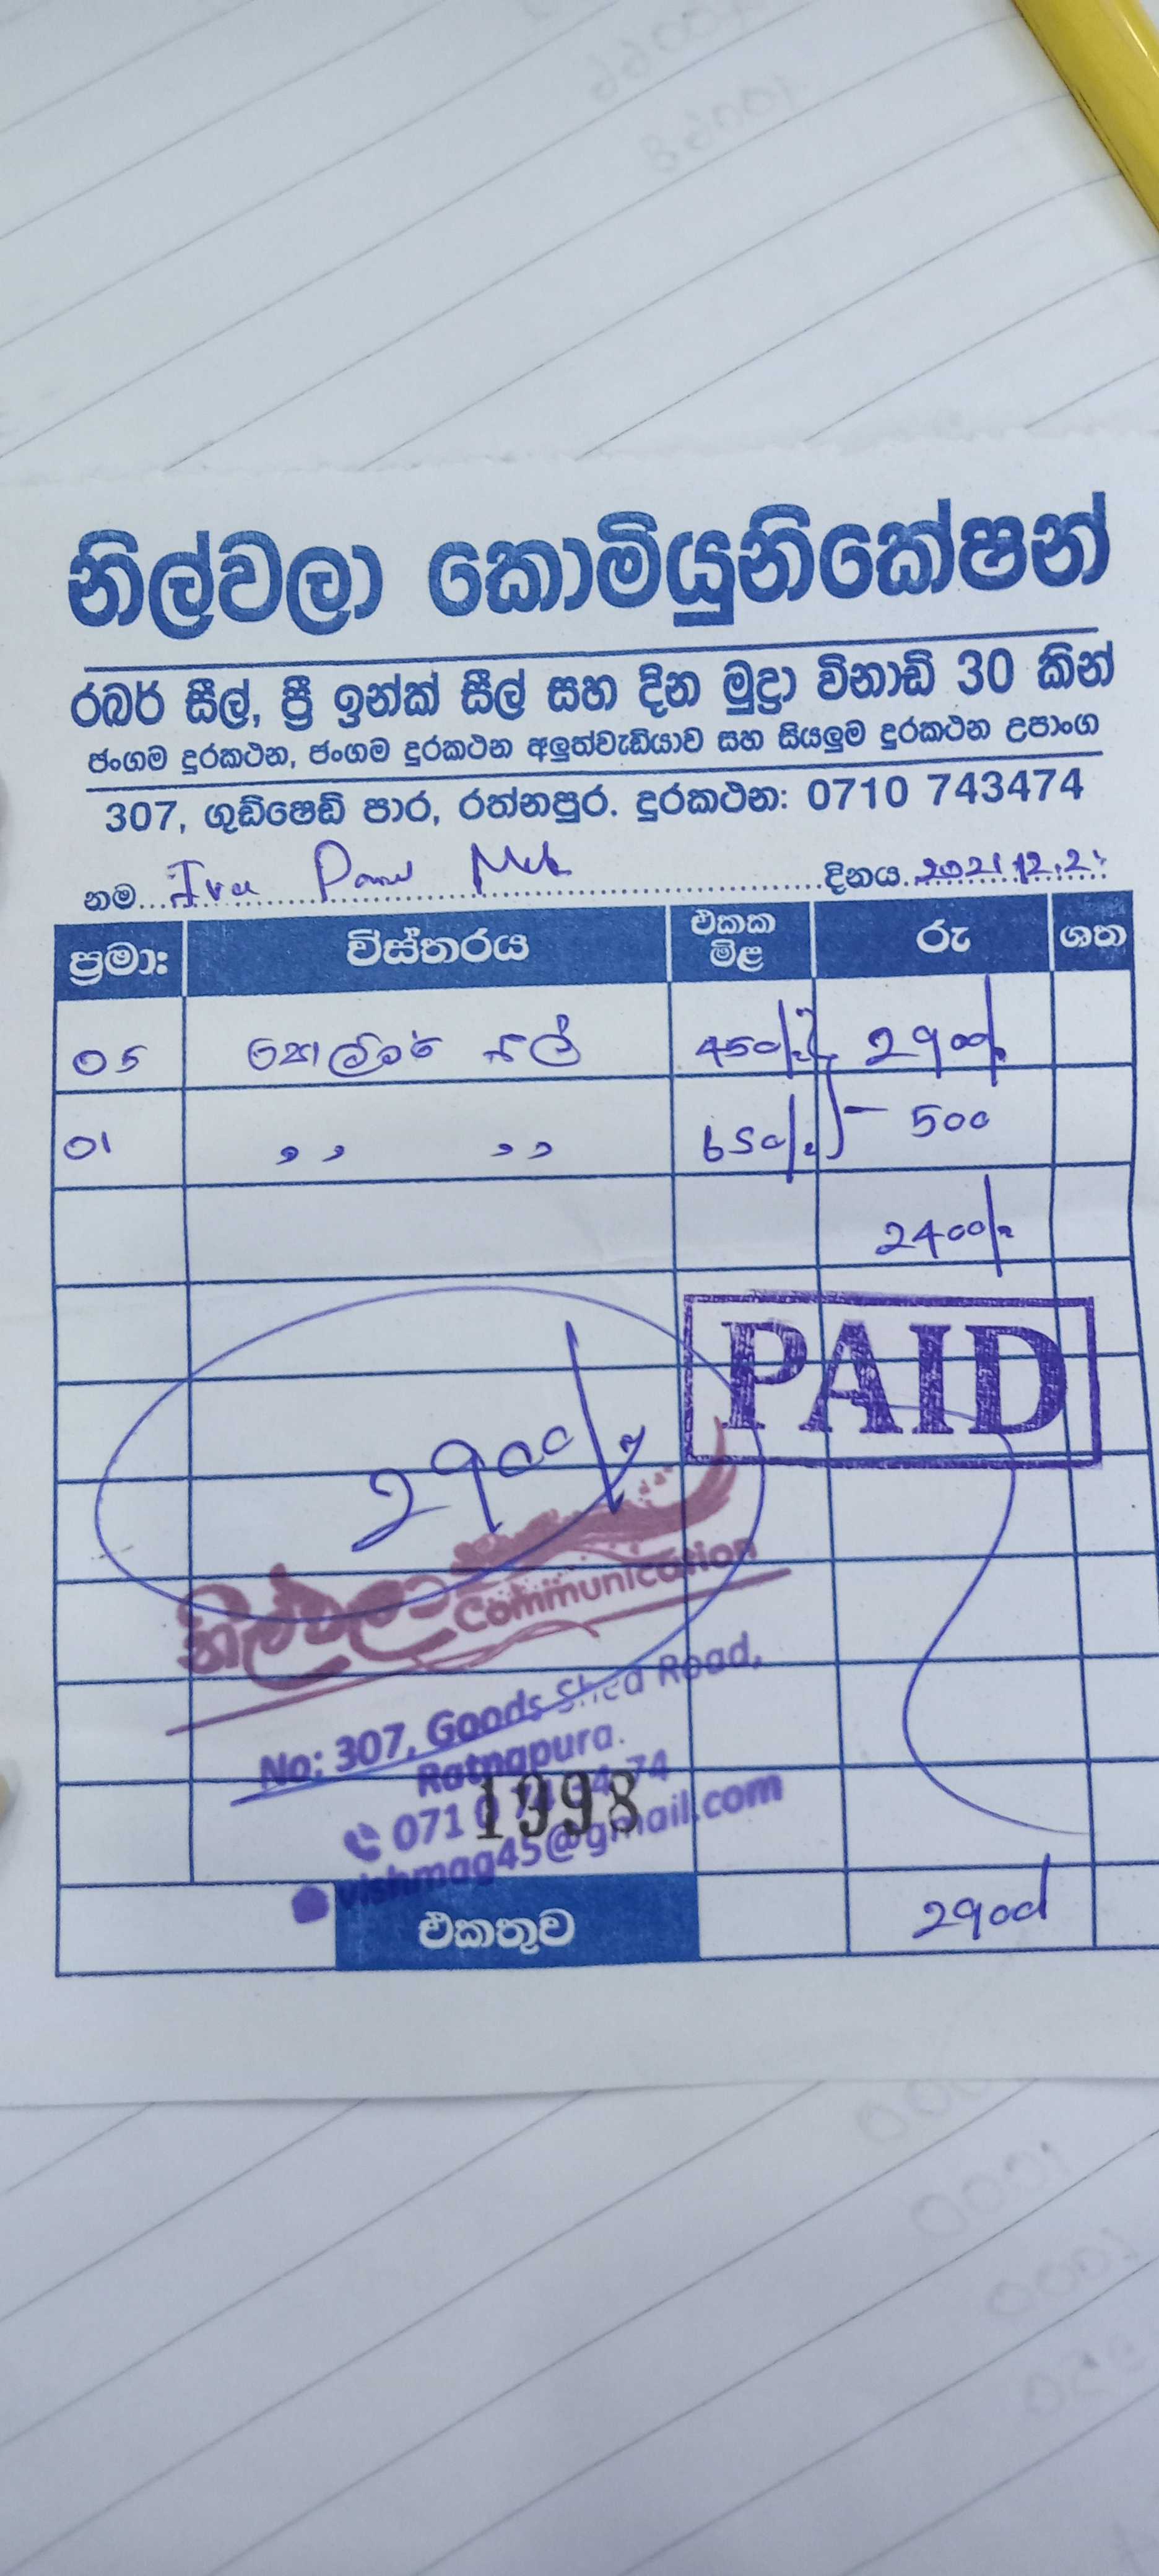 නිල්වලා කොමියුනිකේෂන්
රබර් සීල්, ප්‍රී ඉන්ක් සීල් සහ දින මුද්‍රා විනාඩි 30 කින්
ජංගම දුරකථන, ජංගම දුරකථන අලුත්වැඩියාව සහ සියලුම දුරකථන උපාංග
307, ගුඩ්ෂෙඩ් පාර, රත්නපුර. දුරකථන: 0710 743474
නම දිනය 2021.12.2
ප්‍රමා: විස්තරය එකක මිළ රු ශත
05 සීල් 450/- 2900/-
01 ,, ,, 650/- - 500
2400/-
PAID
2900/-
නිල්වලා Communication
No: 307, Goods Shed Road,
Ratnapura.
071 0 74 34 74
1998
vishmag45@gmail.com
එකතුව 2900/